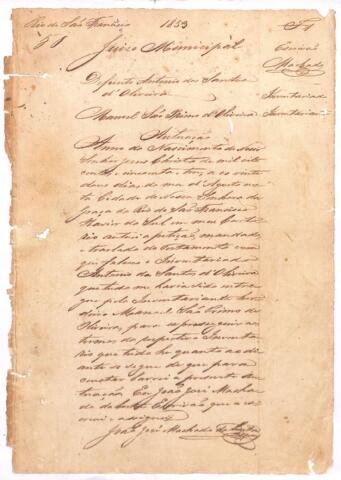 Rio de São Francisco 1853 Fl 1
Juizo Municipal
Escrivão
Machado
Defunto Antonio dos Santos
d'Oliveira Inventariado
Manoel José Primo d'Oliveira Inventariante
Autuação
Anno do Nascimento de Nosso
Senhor Jesus Christo de mil oito
centos cincoenta e trez aos vinte
dous dias do mez d'Agosto nes
ta Cidade de Nossa Senhora da
Graça do Rio de São Francisco
Xavier do Sul em meu Carto
rio autuei a petição, mandado,
e traslado do testamento com
que faleceo o Inventariado
Antonio dos Santos d'Oliveira
que tudo me havia sido entre
gue pelo Inventariante her
deiro Manoel José Primo de
Oliveira, para se proseguir nos
termos do respectivo Inventa
rio que tudo he quanto ao di
ante se segue de que para
constar lavrei a presente au
tuação Eu João José Macha
do da Costa Escrivão que a es
crevi e assignei
João José Machado da Costa